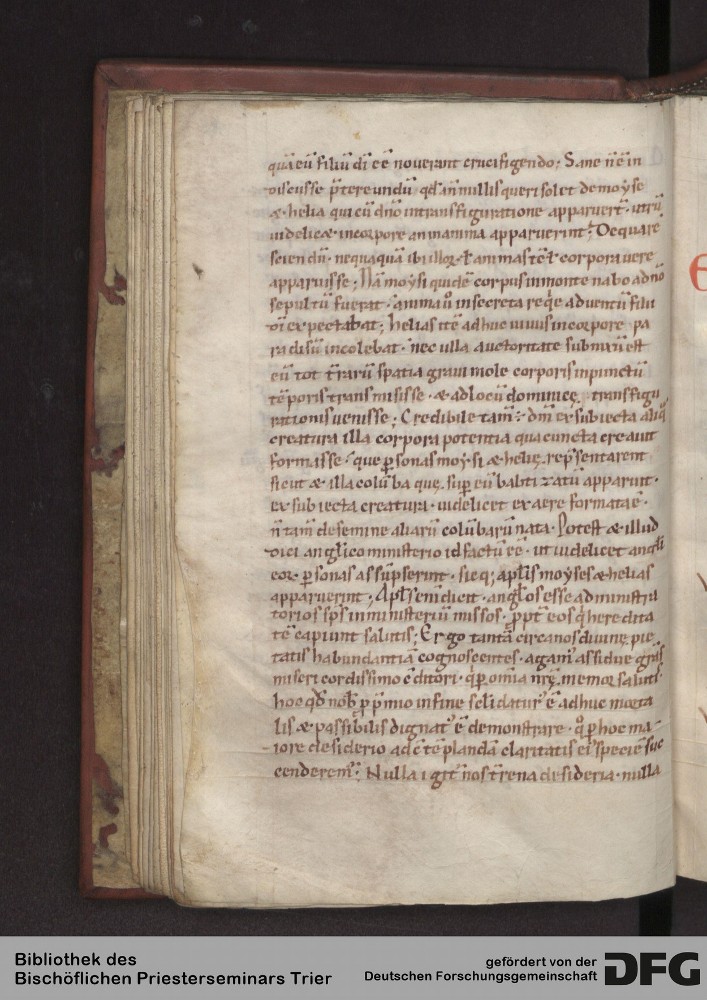 quā eū filiū dī eē noverant crucifigendo; Sane n̄ ē in
discusse p̄tereundū qd̄ an̄ nullis queri solet de moyse
& helia qui cū dn̄o in transfiguratione apparuer̄t · utrū
uidelic& incorpore an in anima apparuerint; De qua re
sciendū · nequaquā ibi illor̄ · ł animas tē ł corpora uere
apparuisse; Nā moysi quidē corpus in monte nabo ad n̄o
sepultū fuerat · anima u͛o in secreta reḡe aduentū filii
dī expectabat; helias itē adhuc uiuus in corpore pa
radisū incolebat · nec ulla auctoritate subnixū est
eū tot t̄rarū spatia graui mole corporis in punctū
tēporis transmisisse · & ad locū dominicę transfigu
rationis uenisse; Credibile tam̄ · dn̄m ex subiecta aliq̄
creatura illa corpora potentia qua cuncta creauit
formasse · que psonas moysi & helię rep̄sentarent
sicut & illa colūba quę sup eū babtizatū apparuit ·
ex subiecta creatura · uidelicet ex aere formata ē ·
n̄ tam̄ de semine aliarū colūbarū nata · Potest & illud
dici anglico ministerio id factū eē · ut uidelicet angli
eor̄ psonas assūpserint · sicq; aplis moyses & helias
apparuerint; Apls eni dicit · anglos esse administra
torios sp̄s in ministeriū missos · ppt̄ eos q̄ heredita
tē capiunt salutis; Ergo tantā circa nos diuinę pie
tatis habundantiā cognoscentes · agam᾽ assidue gr̄as
misericordissimo cōditori · q̄ p omnia nrę memor salutis
hoc qd̄ nob̄ p p̄mio in fine sc̄li datur᾽ ē adhuc morta
lis & passibilis dignat᾽ ē demonstrare · q͛ p hoc ma-
iore desiderio ad cōtēplandā claritatis ei᾽ speciē suc
cenderem᾽; Nulla igit̄ nos t̄rena desideria · nulla
Bibliothek des
Bischöflichen Priesterseminars Trier
gefördert von der
Deutschen Forschungsgemeinschaft
DFG